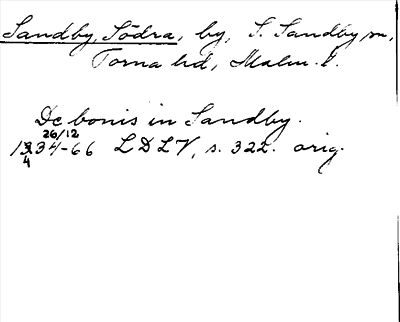 Sandby, Södra, by, S. Sandby sn,
Torna hd, Malm. l.
De bonis in Sandby.
26/12
1334-66 LDLV, s. 322. orig.
4